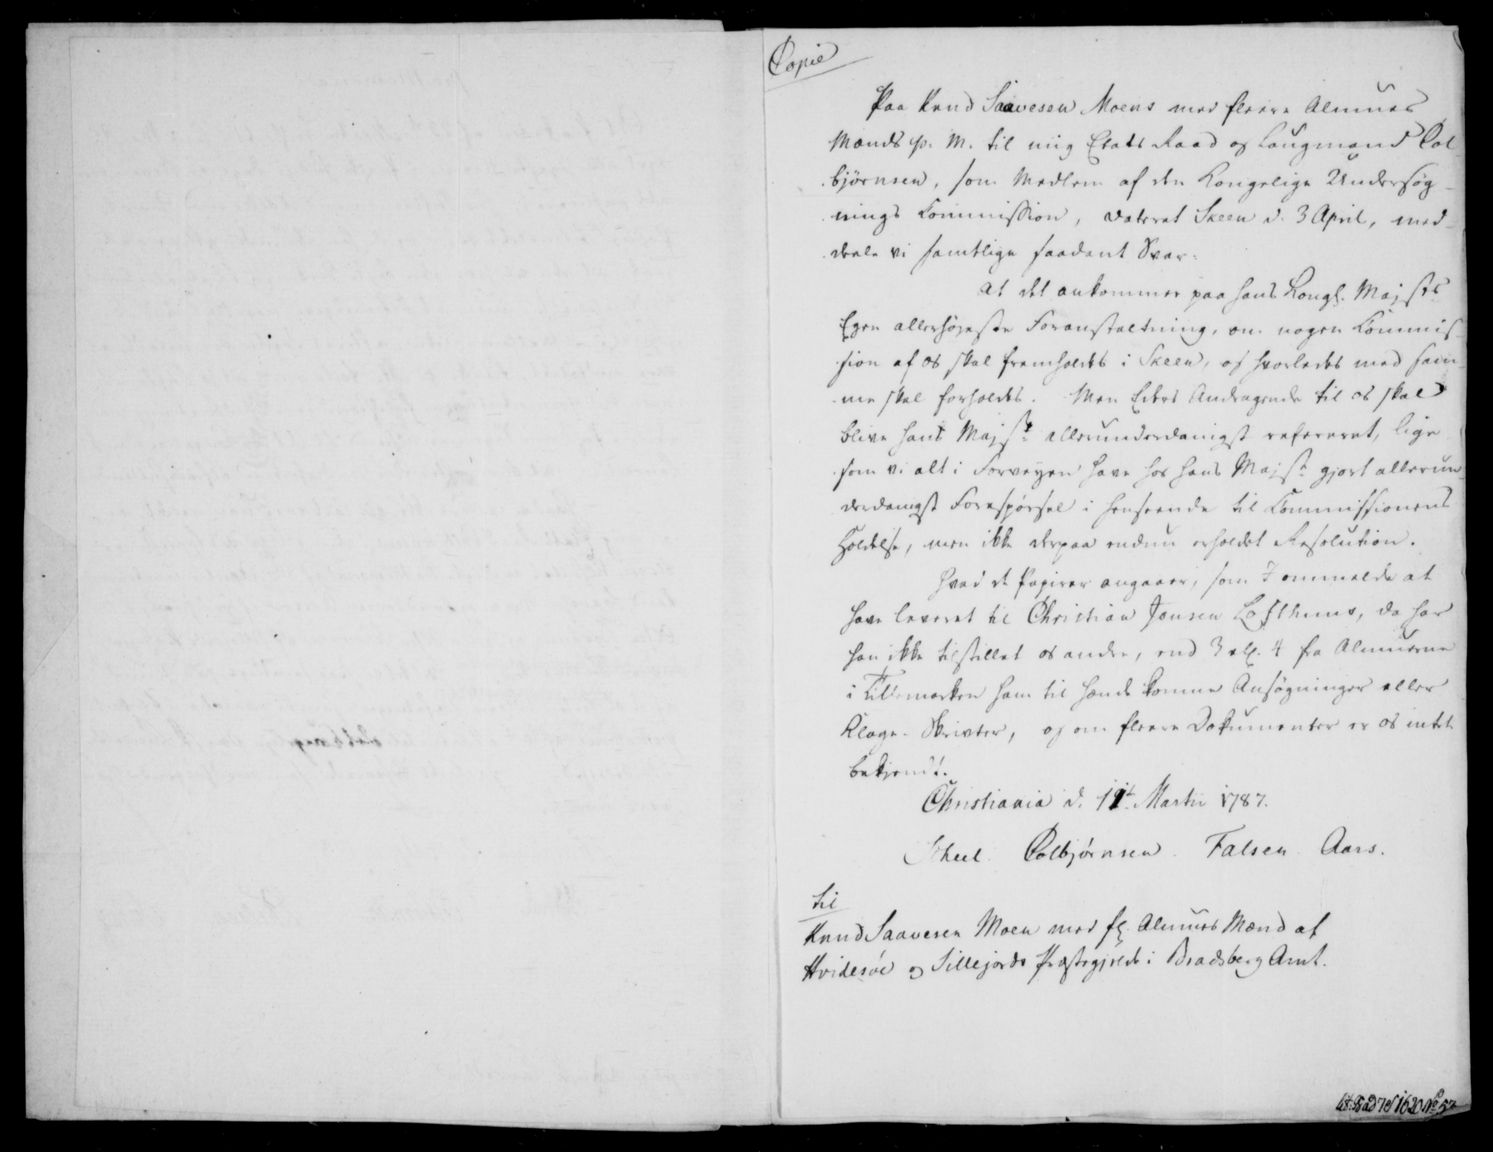 Copie
Paa Knud Saavesen Moens med fleere Almues
Mænds p. M. til mig Etats Raad og Laugmand Col-
biørnsen, som Medlem af den Kongelige Undersøg-
nings Commission, dateret Skeen d. 3 April, med-
deele vi samtlige saadant Svar:
at det ankommer paa hans Kongl. Majsts
Egen allerhøjeste Foranstaltning, om nogen Commis-
sion af os skal fremholdes i Skeen, og hvorledes med sam-
me skal forholdes. Men Eders Andragende til os skal
blive hans Majst. allerunderdanigst refereret, lige
som vi alt i Forveyen have hos hans Majst. gjort allerun-
derdanigst Forespørsel i henseende til Commissionens
Holdelse, men ikke derpaa endnu erholdet Resolution.
Hvad de Papirer angaaer, som I ommelde at
have leveret til Christian Jensen Lofthuus, da har
han ikke tilstillet os andre, end 3 ell. 4 fra Almuerne
i Tillemarken ham til hænde komne Ansøgninger eller
Klage-Skrivter, og om fleere Dokumenter er os intet
bekjendt.
Christiania d. Martii 1787.
Scheel. Colbjørnsen. Falsen. Aars.
til
Knud Saavesen Moen med fl. Almues Mænd af
Hvidesøe og Sillejords Præstegjelde i Bradsberg Amt.